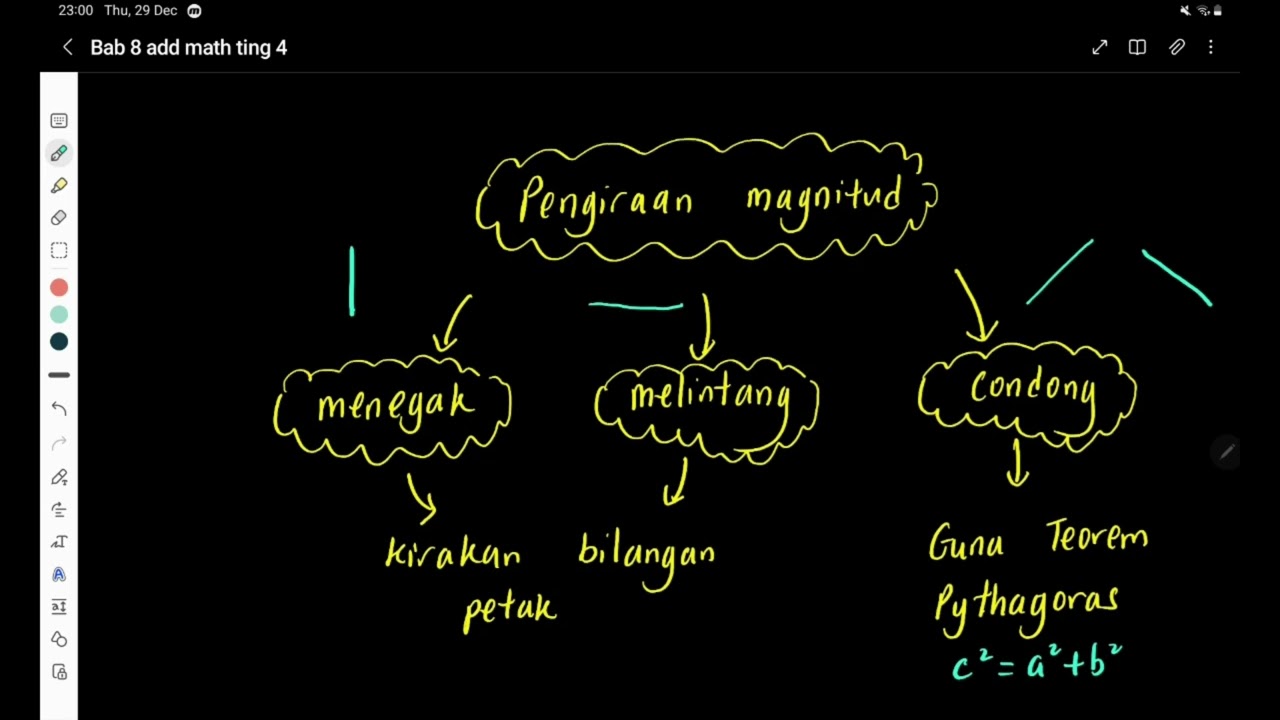 23:00 Thu, 29 Dec
Bab 8 add math ting 4
Pengiraan magnitud
menegak
melintang
condong
kirakan bilangan
petak
Guna Teorem
Pythagoras
c² = a² + b²